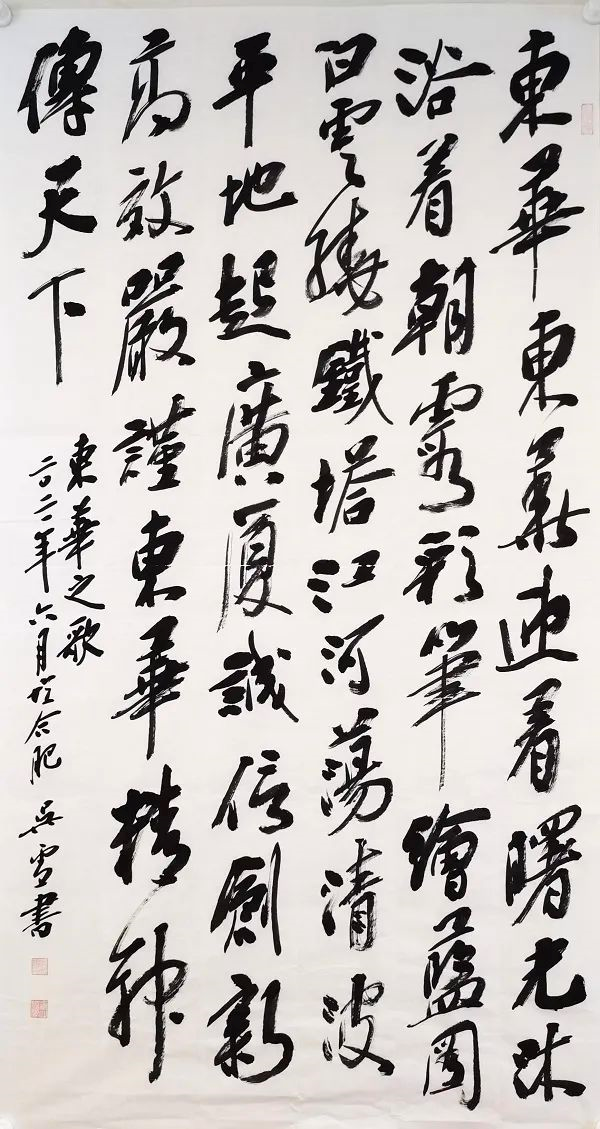 東華東華迎着曙光沐
浴着朝露彩筆繪藍圖
白雲繞鐵塔江河蕩清波
平地起廣厦誠信創新
高效嚴謹東華精神
傳天下
東華之歌
二〇二二年六月於合肥 吴雪書